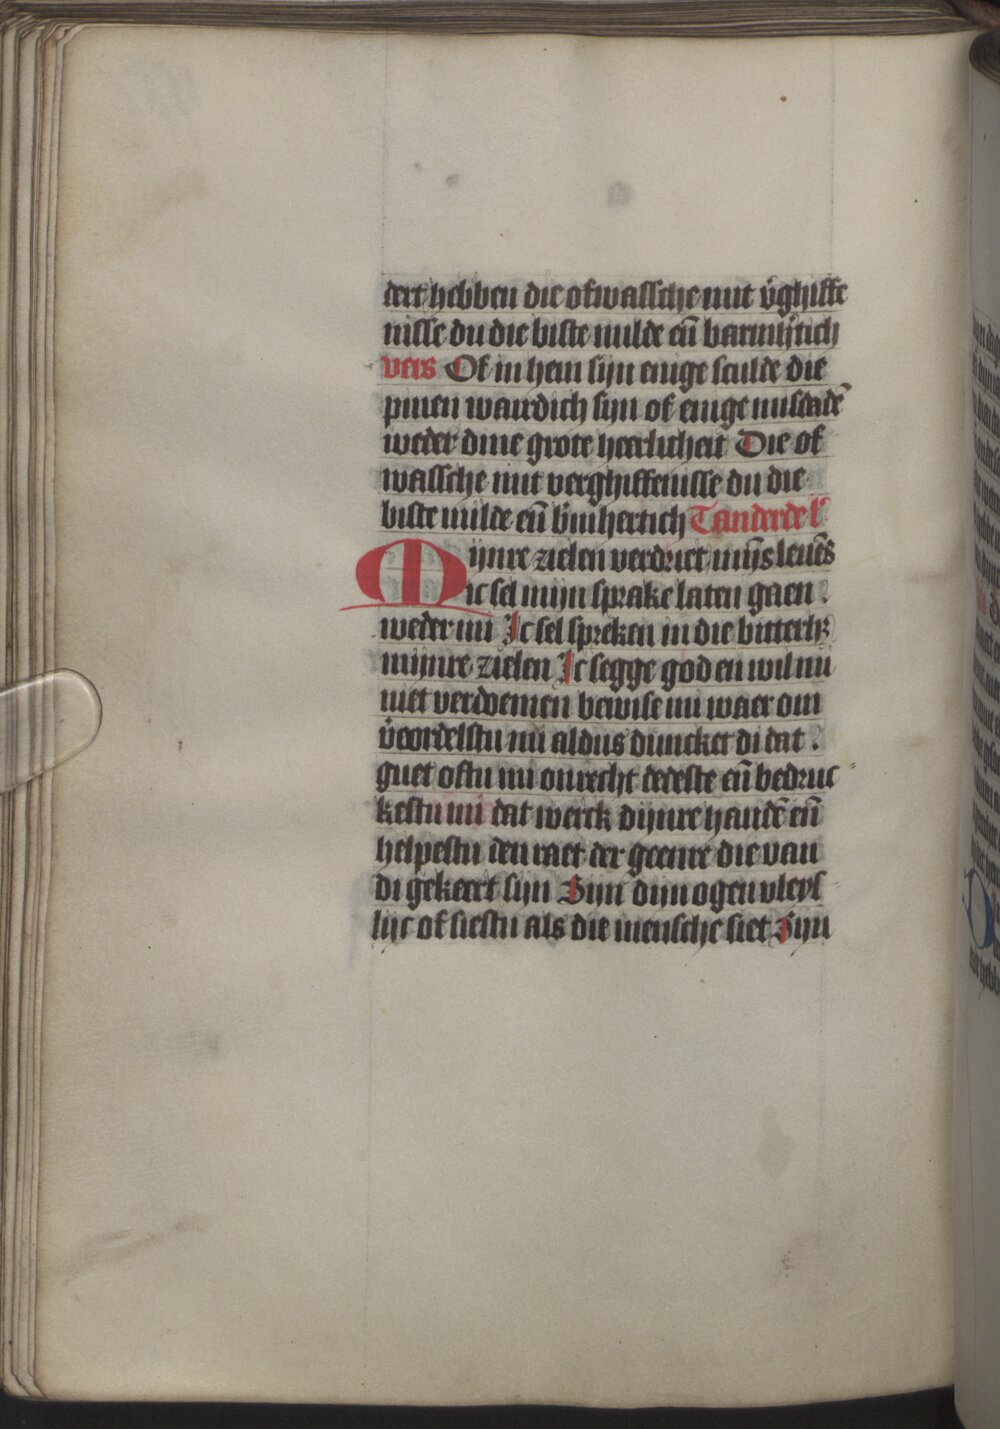 dert hebben die ofwassche mit v̄ghiffe
nisse du die biste milde en̄ barmh̄tich
vers Of in hem sijn enige sculde die
pinen waerdich sijn of enige misdadē
weder dine grote heerlicheit Die of
wassche mit verghiffenisse du die
biste milde en̄ b̄mhertich Tanderde l'
Mijnre zielen verdriet mijs leuēs
ic sel mijn sprake laten gaen
weder mi Ic sel spreken in die bitterh;
mijnre zielen Ic segge god en wil mi
niet verdoemen bewise mi waer om
v̄oordelstu mi aldus duncket di dat
guet oftu mi onrecht dedeste en̄ bedruc
kestu mi dat werck dijnre handē en̄
helpestu den raet der geenre die van
di gekeert sijn Sijn dijn ogen vleys
lijc of siestu als die mensche siet Sijn